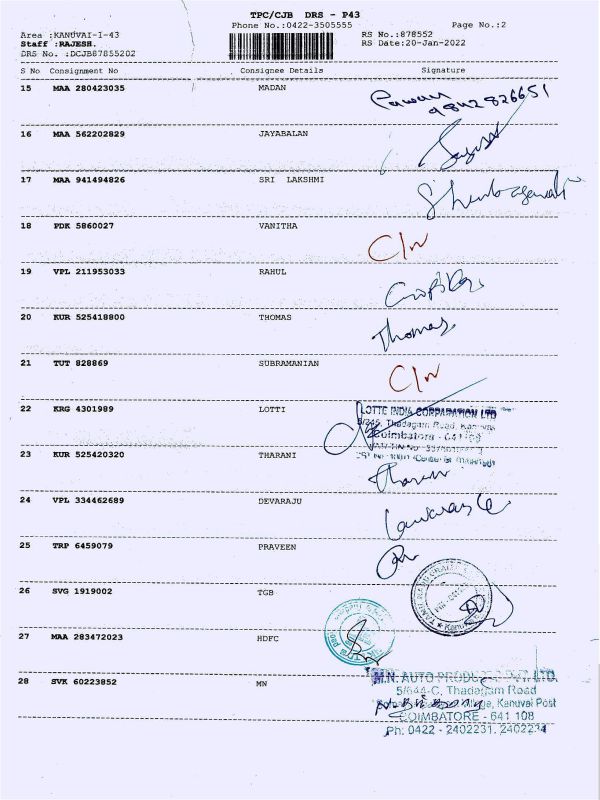 TPC/CJB DRS - P43
Phone No.:0422-3505555 Page No.:2
Area :KANUVAI-I-43 RS No.:878552
Staff :RAJESH. RS Date:20-Jan-2022
DRS No. :DCJB87855202
S No Consignment No Consignee Details Signature
15 MAA 280423035 MADAN
9842826651
16 MAA 562202829 JAYABALAN
17 MAA 941494826 SRI LAKSHMI
18 PDK 5860027 VANITHA C/N
19 VPL 211953033 RAHUL
20 KUR 525418800 THOMAS Thomas
21 TUT 828869 SUBRAMANIAN C/N
22 KRG 4301989 LOTTI LOTTE INDIA CORPARATION LTD
Thadagam Road,
Coimbatore - 641108
23 KUR 525420320 THARANI
24 VPL 334462689 DEVARAJU
25 TRP 6459079 PRAVEEN
26 SVG 1919002 TGB
27 MAA 283472023 HDFC
28 SVK 60223852 MN M.N. AUTO PRODUCTS PVT. LTD.
5/644-C, Thadagam Road
Village, Kanuvai Post
COIMBATORE - 641 108
Ph: 0422 - 2402231, 2402234